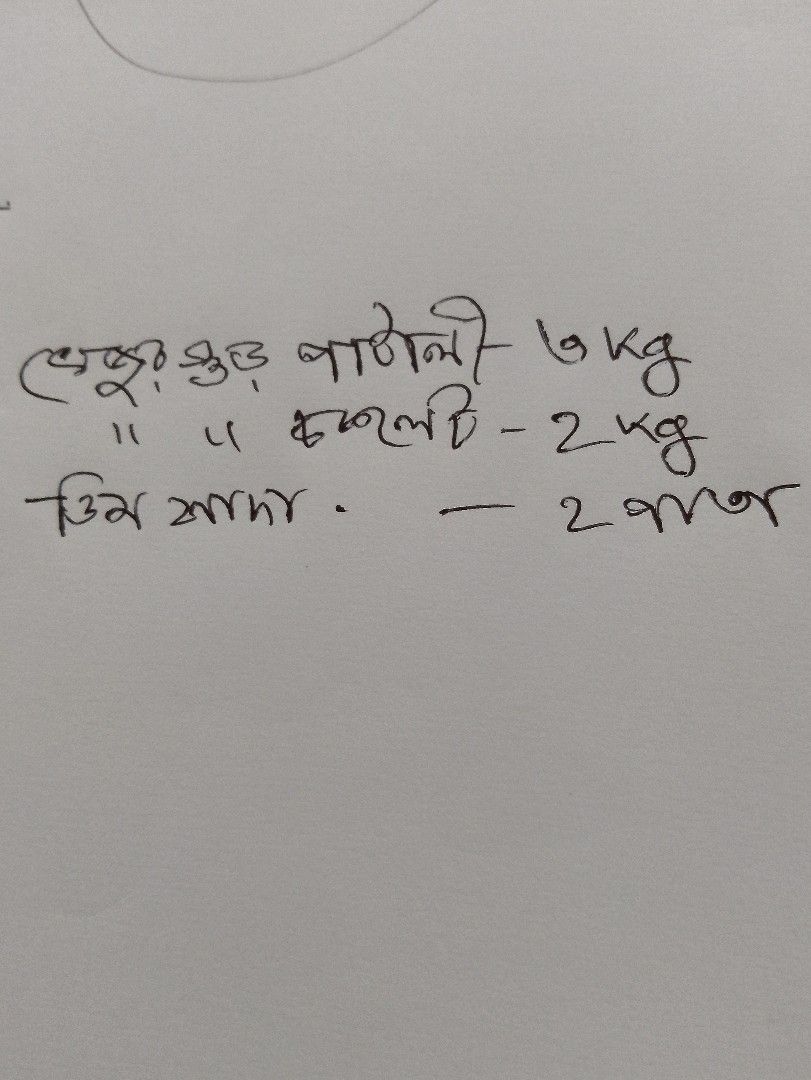 খেজুর গুড় পাটালী - ৩ kg
" " চকলেট - 2 kg
ডিম সাদা . — 2 পাতা